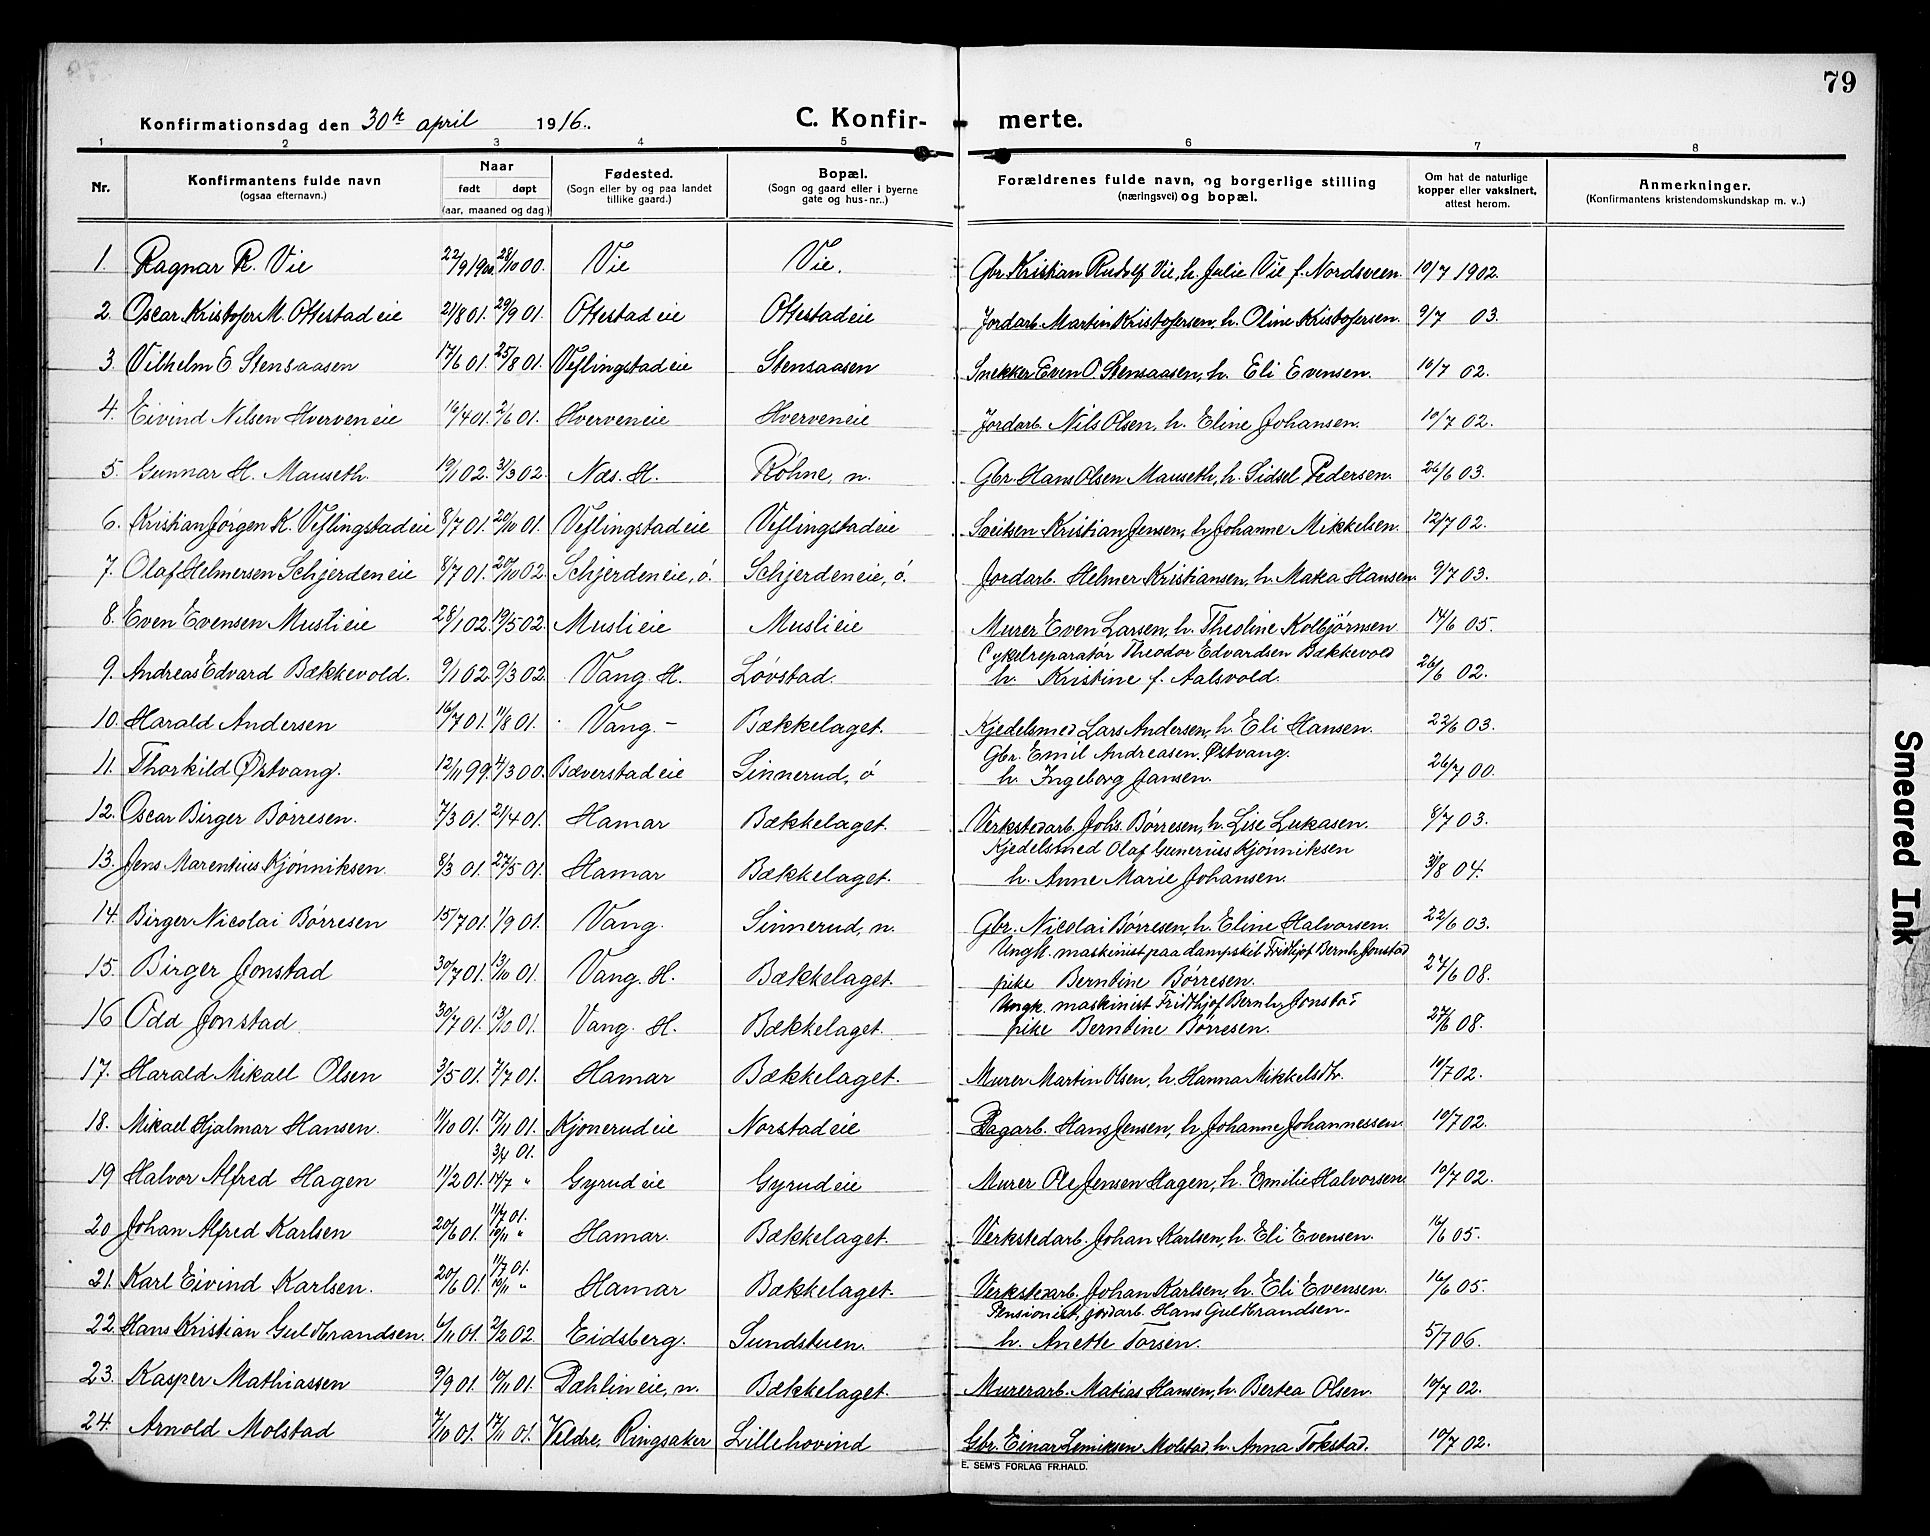 79
Konfirmationsdag den 30te april 1916.
C. Konfir- merte.
1 2 3 4 5 6 7 8
Nr. Konfirmantens fulde navn (ogsaa efternavn.) Naar født døpt (aar, maaned og dag) Fødested. (Sogn eller by og paa landet tillike gaard.) Bopæl. (Sogn og gaard eller i byerne gate og hus-nr..) Forældrenes fulde navn, og borgerlige stilling (næringsvei) og bopæl. Om hat de naturlige kopper eller vaksinert, attest herom. Anmerkninger. (Konfirmantens kristendomskundskap m. v..)
1. Ragnar R. Vie 22/9 1900. 28/10 00. Vie Vie. Gbr. Kristian Rudolf Vie, h. Julie Vie f. Nordsveen. 10/7 1902.
2. Oscar Kristofer M. Ottestadeie 21/8 01. 29/9 01. Ottestadeie Ottestadeie Jordarb. Martin Kristofersen, h. Oline Kristofersen. 9/7 03.
3. Vilhelm E Stensaasen 17/6 01. 25/8 01. Veflingstadeie Stensaasen Snekker Even O. Stensaasen, h. Eli Evensen. 10/7 02.
4. Eivind Nilsen Hverveneie 16/4 01. 2/6 01. Hverveneie Hverveneie Jordarb. Nils Olsen, h. Eline Johansen. 10/7 02.
5. Gunnar H. Mauseth. 19/1 02. 31/3 02. Næs. H. Røhne, n. Gbr. Hans Olsen Mauseth, h. Sidsel Pedersen. 26/6 03.
6. Kristian Jørgen K. Veflingstadeie 8/7 01. 20/10 01. Veflingstadeie Veflingstadeie Kristian Jensen, h. Johanne Mikkelsen. 12/7 02.
7. Olaf Helmersen Schjerdeneie 8/7 01. 20/10 02. Schjerdeneie, ö. Schjerdeneie, ö. Jordarb. Helmer Kristiansen, h. Maka Hansen. 9/7 03.
8. Even Evensen Muslieie 28/1 02. 19/5 02. Muslieie Muslieie Murer Even Larsen, h. Theoline Kolbjørnsen 14/6 05.
9. Andreas Edvard Bækkevold. 9/1 02. 9/3 02. Vang. H. Løvstad. Cykelreparatör Theodor Edvardsen Bækkevold
h. Kristine f. Aalsvold. 26/6 02.
10. Harald Andersen 16/7 01. 11/8 01. Vang. – Bækkelaget. Kjedelsmed Lars Andersen, h. Eli Hansen. 22/6 03.
11. Thorkild Østvang. 12/11 99. 4/3 00. Bæverstadeie Sinnerud, ö Gbr. Emil Andreasen Østvang.
h. Ingeborg Jansen. 26/7 00.
12. Oscar Birger Børresen. 7/3 01. 21/4 01. Hamar Bækkelaget. Verkstedarb. Johs. Børresen, h. Lise Lukasen. 8/7 03.
13. Jens Marentius Kjønniksen. 8/3 01. 27/5 01. Hamar Bækkelaget. Kjedelsmed Olaf Gunerius Kjønniksen
h. Anne Marie Johansen. 31/8 04.
14. Birger Nicolai Børresen 15/7 01. 1/9 01. Vang. Sinnerud, n. Gbr. Nicolai Børresen, h. Eline Halvorsen. 22/6 03.
15. Birger Jonstad 30/7 01. 13/10 01. Vang. H. Bækkelaget. Ungk. maskinist paa dampskib Fridthjof Bernh. Jonstad
pike Berntine Børresen. 27/6 08.
16 Odd Jonstad 30/7 01. 13/10 01. Vang. H. Bækkelaget. Ungk. maskinist Fridthjof Bernh. Jonstad
pike Berntine Børresen. 27/6 08.
17. Harald Mikael Olsen 3/5 01. 7/7 01. Hamar Bækkelaget. Murer Martin Olsen, h. Hanna Mikkelsdtr. 10/7 02.
18. Mikael Hjalmar Hansen. 11/10 01. 17/11 01. Kjonerudeie Norstadeie Dagarb. Hans Jensen, h. Johanne Johannessen. 10/7 02.
19 Halvor Alfred Hagen 11/2 01. 3/4 01. 14/7 " Gyrudeie Gyrudeie Murer Ole Jensen Hagen, h. Emilie Halvorsen. 10/7 02.
20 Johan Alfred Karlsen 20/6 01. 11/7 01. 10/11 " Hamar. Bækkelaget. Verkstedarb. Johan Karlsen, h. Eli Evensen. 16/6 05.
21. Karl Eivind Karlsen. 20/6 01. 11/7 01. 10/11 " Hamar Bækkelaget. Verkstedarb. Johan Karlsen, h. Eli Evensen. 16/6 05.
22. Hans Kristian Guldbrandsen. 6/11 01. 2/2 02. Eidsberg. Sundstuen. Pensionist, jordarb. Hans Gulbrandsen.
h. Anette Torsen. 5/7 06.
23. Kasper Mathiassen 9/9 01. 10/11 01. Dæhlineie, n. Bækkelaget. Murerarb. Matias Hansen, h. Bertea Olsen. 10/7 02.
24. Arnold Molstad 7/10 01. 17/11 01. Veldre, Ringsaker Lillehovind Gbr. Einar Lemiksen Molstad, h. Anna Tokstad. 10/7 02.
E. SEM'S FORLAG FR.HALD.
Smeared Ink